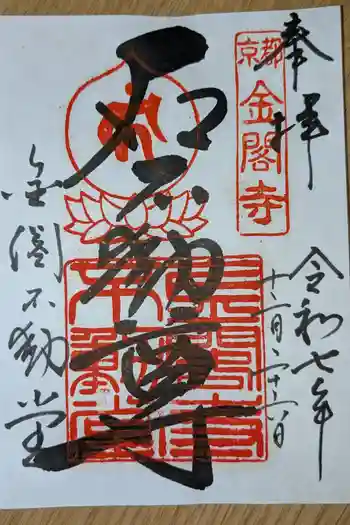 奉拝
京都
金閣寺
令和七年
十二月二十六日
石不動尊
金閣不動堂